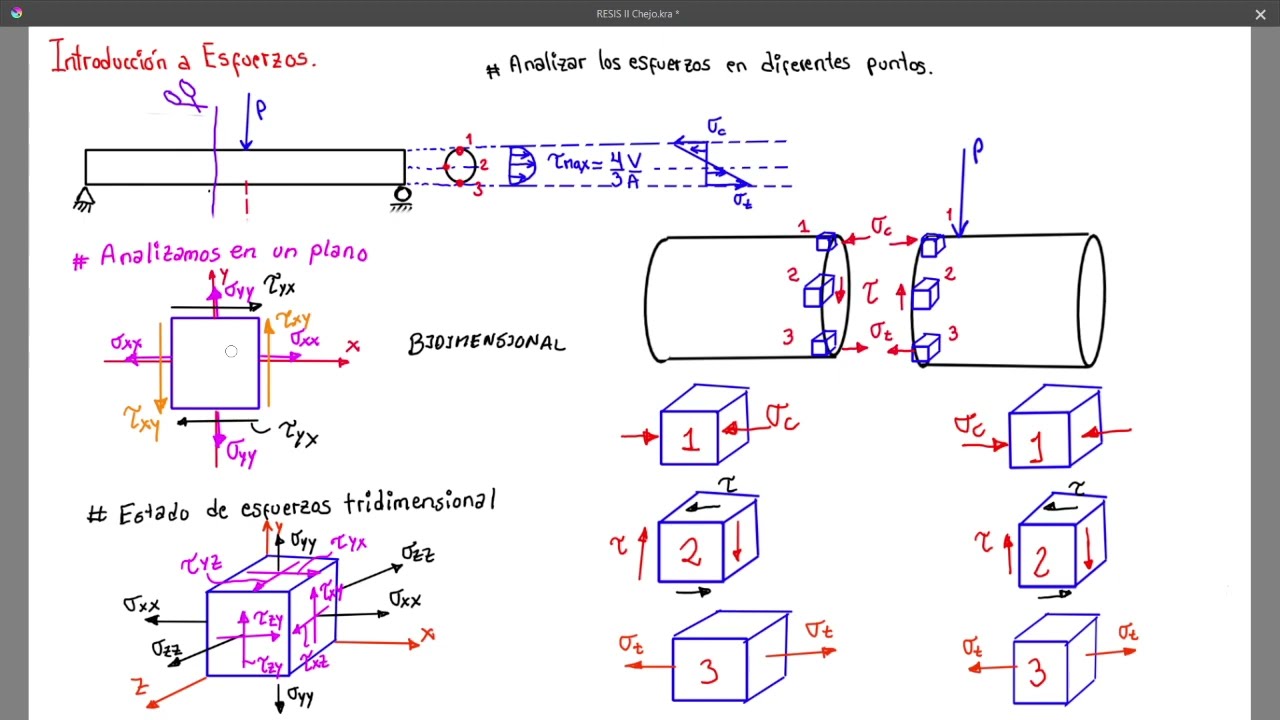 RESIS II Chejo.kra *
Introducción a Esfuerzos.
# Analizar los esfuerzos en diferentes puntos.
P
1
2
3
τmax = 4/3 V/A
σc
σt
# Analizamos en un plano
y
σyy
τyx
τxy
σxx
σxx
x
τxy
τyx
σyy
BIDIMENSIONAL
P
1
σc
1
2
τ
2
3
σt
3
1
σc
σc
1
τ
τ
2
τ
τ
2
σt
3
σt
σt
3
σt
# Estado de esfuerzos tridimensional
y
σyy
τyx
τyz
σzz
τxy
σxx
σxx
τzy
σzz
τzy
τxz
x
z
σyy